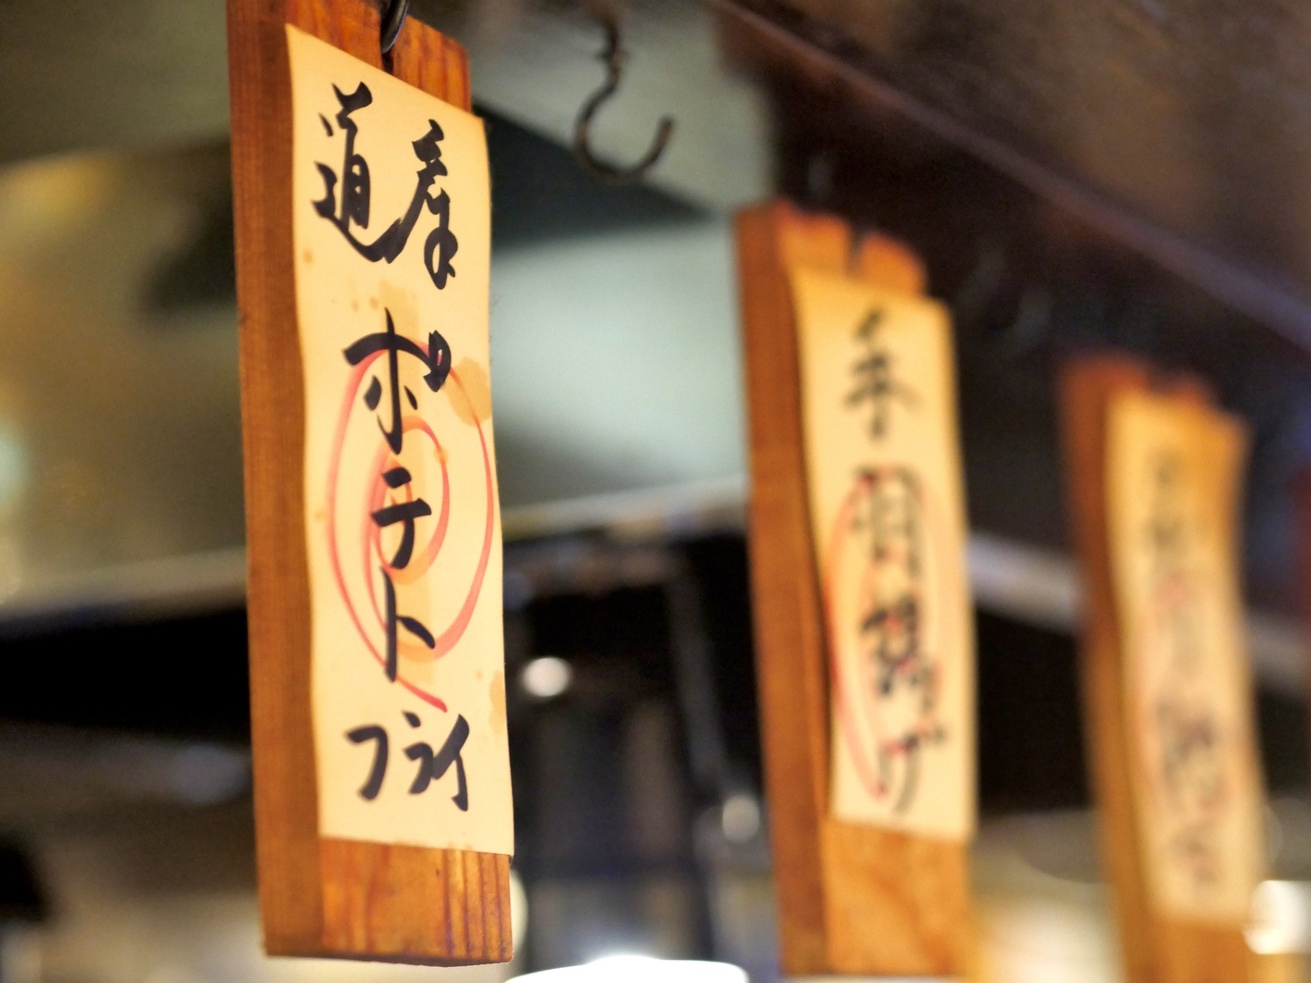 道産
ポテト
フライ
手羽揚げ